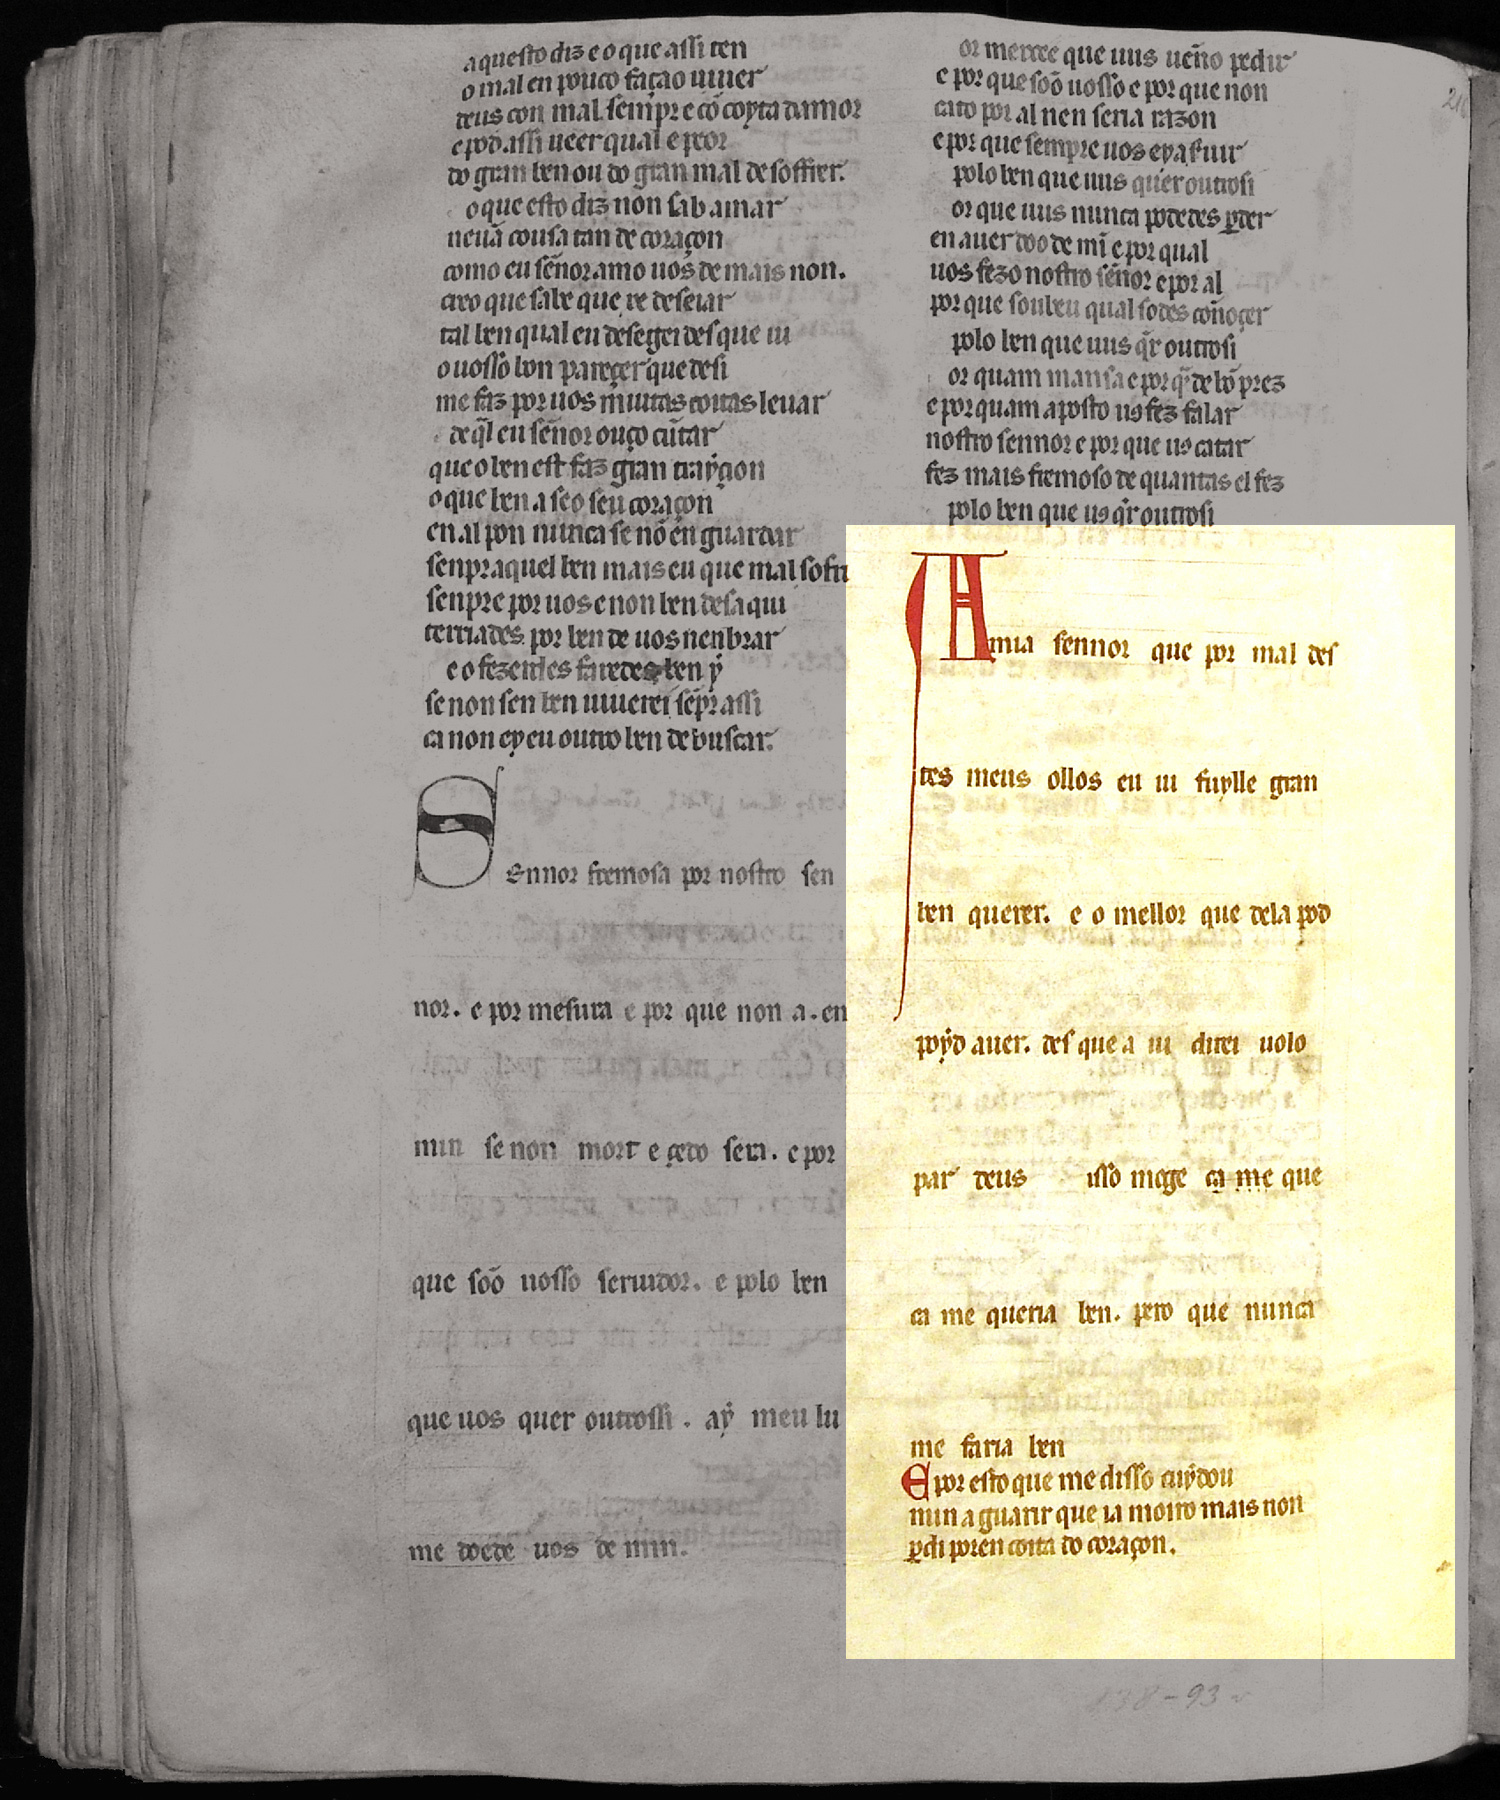 aquesto diz e o que assi ten
o mal en pouco façao uiuer
deus con mal. sempre e cõ coyta damor
e pod.assi ueer qual e peor
do gran ben ou do gran mal de soffrer.
o que esto diz non sab amar
neuã cousa tan de coraçon
como eu sẽnor amo uos de mais non.
creo que sabe que xe deseiar
tal ben qual eu desegei des que ui
o uosso bon pareçer que desi
me faz por uos muitas coitas leuar
de q̃l eu sẽnor ouço cũtar
que o ben est faz gran trayçon
o que ben a seo seu coraçon
en al pon nunca se nõ en guardar
senpr aquel ben mais eu que mal sofri
senpre por uos e non ben desaqui
terriades por ben de uos nenbrar
e o fezerdes faredes ben ẏ
se non sen ben uiuerei sẽpr assi
ca non ey eu outro ben de buscar.
Sennor fremosa por nostro sen
nor. e por mesura e por que non a. en
min se non mort e çeto sera. e por
que soõ uosso seruidor. e polo ben
que uos quer outrossi. aẏ meu lu
me doede uos de min.
or merçee que uus uẽno pedir
e por que soõ uosso e por que non
cato por al nen seria razon
e por que sempre uos ey a seruir
polo ben que uus quer outrosi
or que uus nunca podedes ꝑder
en auer doo de mĩ e por qual
uos fezo nostro sẽnor e por al
por que soub eu qual sodes coñoçer
polo ben que uus q̃r outrosi
or quam mansa e por q̃ de bõ prez
e por quam aposto us fez falar
nostro sennor e por que us catar
fez mais fremoso de quantas el fez
polo ben que us q̃r outrosi
Amia sennor que por mal des
tes meus ollos eu ui fuylle gran
ben querer. e o mellor que dela pod
poẏd auer. des que a ui direi uolo
par deus isso mege ca me que
ca me queria ben. pero que nunca
me faria ben
E por esto que me disso cuẏdou
mun a guarir que ia moiro mais non
ꝑdi poren coita do coraçon.